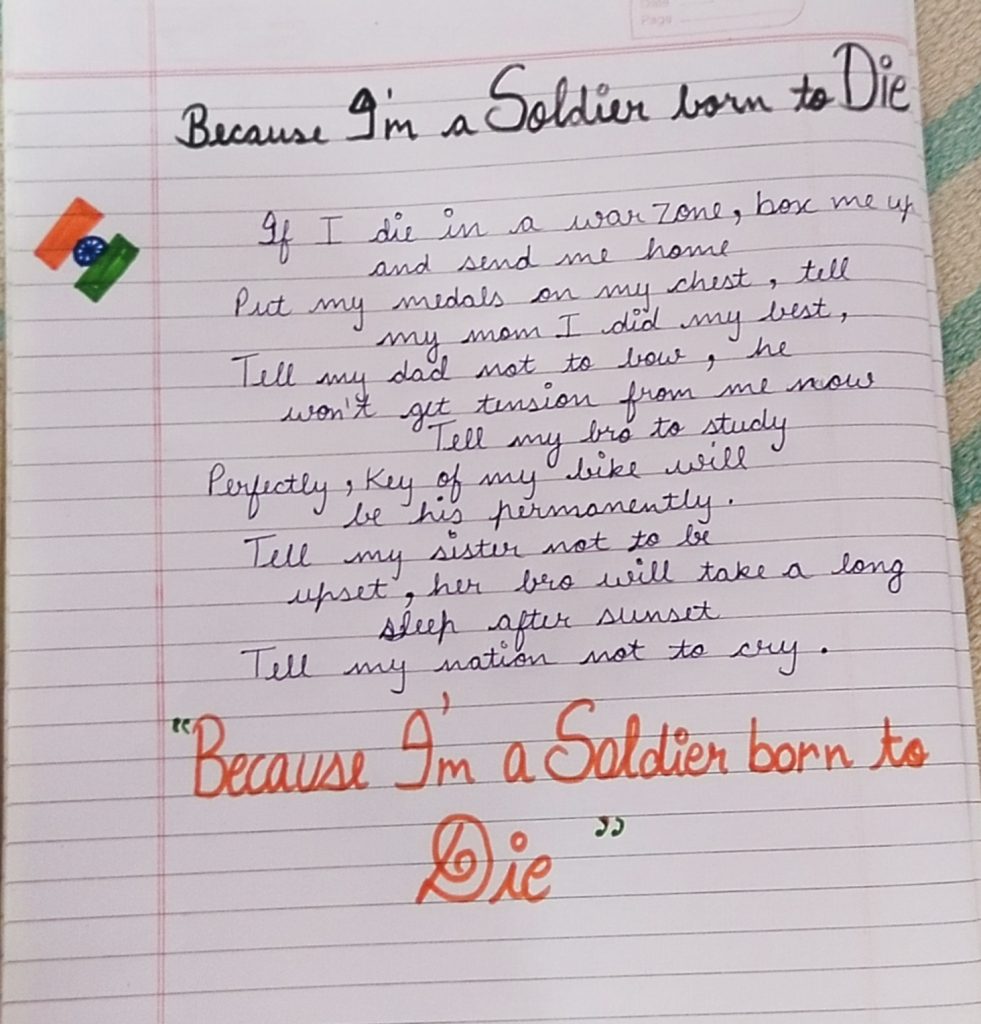 Date
Page
Because I'm a Soldier born to Die
If I die in a war zone, box me up
and send me home
Put my medals on my chest, tell
my mom I did my best,
Tell my dad not to bow, he
won't get tension from me now
Tell my bro to study
Perfectly, Key of my bike will
be his permanently.
Tell my sister not to be
upset, her bro will take a long
sleep after sunset
Tell my nation not to cry.
"Because I'm a Soldier born to
Die"